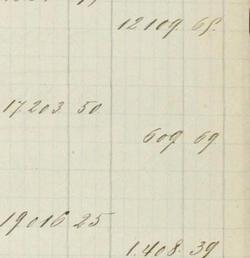 12109. 65.
17203 50
609 69
19016 25
1.408. 39